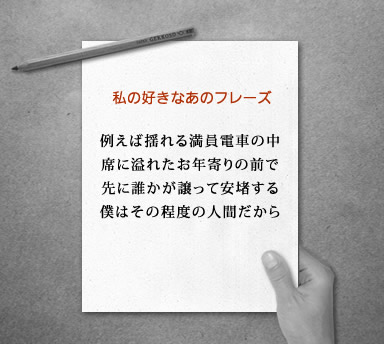 私の好きなあのフレーズ
例えば揺れる満員電車の中
席に溢れたお年寄りの前で
先に誰かが譲って安堵する
僕はその程度の人間だから